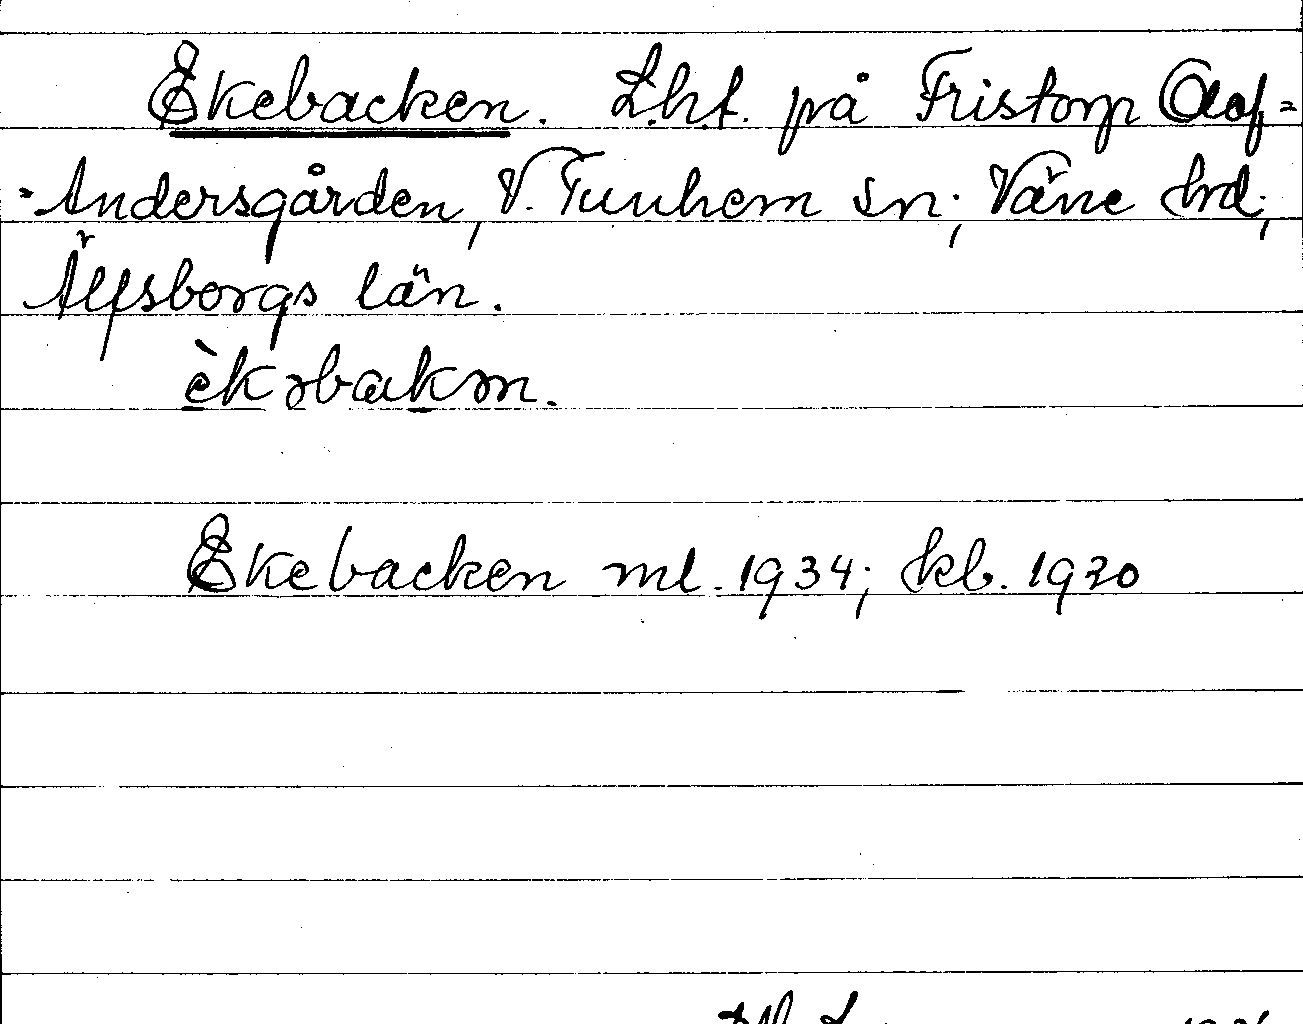 Ekebacken. L.h.t. på Fristorp Olof-
-Andersgården, V. Tunhem sn; Väne hd;
Älfsborgs län.
èkəbakən.
Ekebacken ml. 1934; kb. 1920